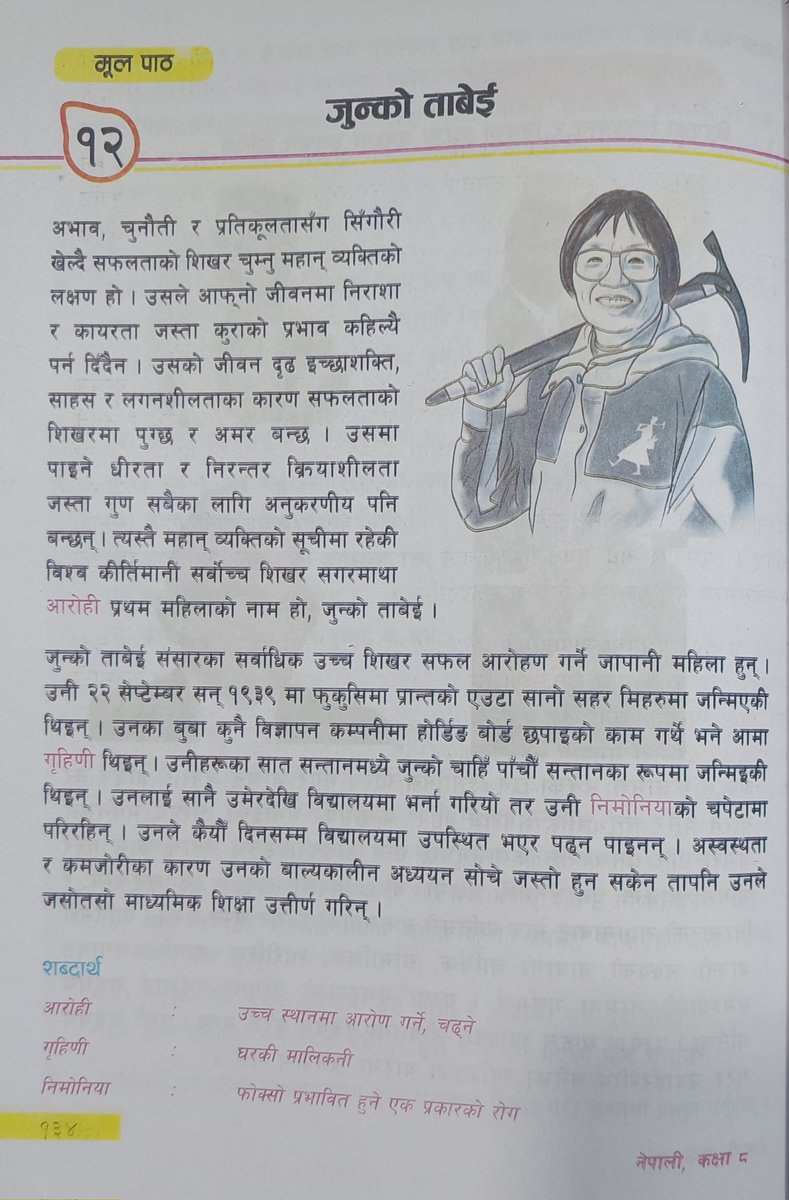 मूल पाठ
१२
जुन्को ताबेई
अभाव, चुनौती र प्रतिकूलतासँग सिँगौरी
खेल्दै सफलताको शिखर चुम्नु महान् व्यक्तिको
लक्षण हो । उसले आफ्नो जीवनमा निराशा
र कायरता जस्ता कुराको प्रभाव कहिल्यै
पर्न दिँदैन । उसको जीवन दृढ इच्छाशक्ति,
साहस र लगनशीलताका कारण सफलताको
शिखरमा पुग्छ र अमर बन्छ । उसमा
पाइने धीरता र निरन्तर क्रियाशीलता
जस्ता गुण सबैका लागि अनुकरणीय पनि
बन्छन् । त्यस्तै महान् व्यक्तिको सूचीमा रहेकी
विश्व कीर्तिमानी सर्वोच्च शिखर सगरमाथा
आरोही प्रथम महिलाको नाम हो, जुन्को ताबेई ।
जुन्को ताबेई संसारका सर्वाधिक उच्च शिखर सफल आरोहण गर्ने जापानी महिला हुन् ।
उनी २२ सेप्टेम्बर सन् १९३९ मा फुकुसिमा प्रान्तको एउटा सानो सहर मिहरुमा जन्मिएकी
थिइन् । उनका बुबा कुनै विज्ञापन कम्पनीमा होर्डिङ बोर्ड छपाइको काम गर्थे भने आमा
गृहिणी थिइन् । उनीहरूका सात सन्तानमध्ये जुन्को चाहिँ पाँचौँ सन्तानका रूपमा जन्मिइकी
थिइन् । उनलाई सानै उमेरदेखि विद्यालयमा भर्ना गरियो तर उनी निमोनियाको चपेटामा
परिरहिन् । उनले कैयौँ दिनसम्म विद्यालयमा उपस्थित भएर पढ्न पाइनन् । अस्वस्थता
र कमजोरीका कारण उनको बाल्यकालीन अध्ययन सोचे जस्तो हुन सकेन तापनि उनले
जसोतसो माध्यमिक शिक्षा उत्तीर्ण गरिन् ।
शब्दार्थ
आरोही : उच्च स्थानमा आरोण गर्ने, चढ्ने
गृहिणी : घरकी मालिकनी
निमोनिया : फोक्सो प्रभावित हुने एक प्रकारको रोग
१३४
नेपाली, कक्षा ८